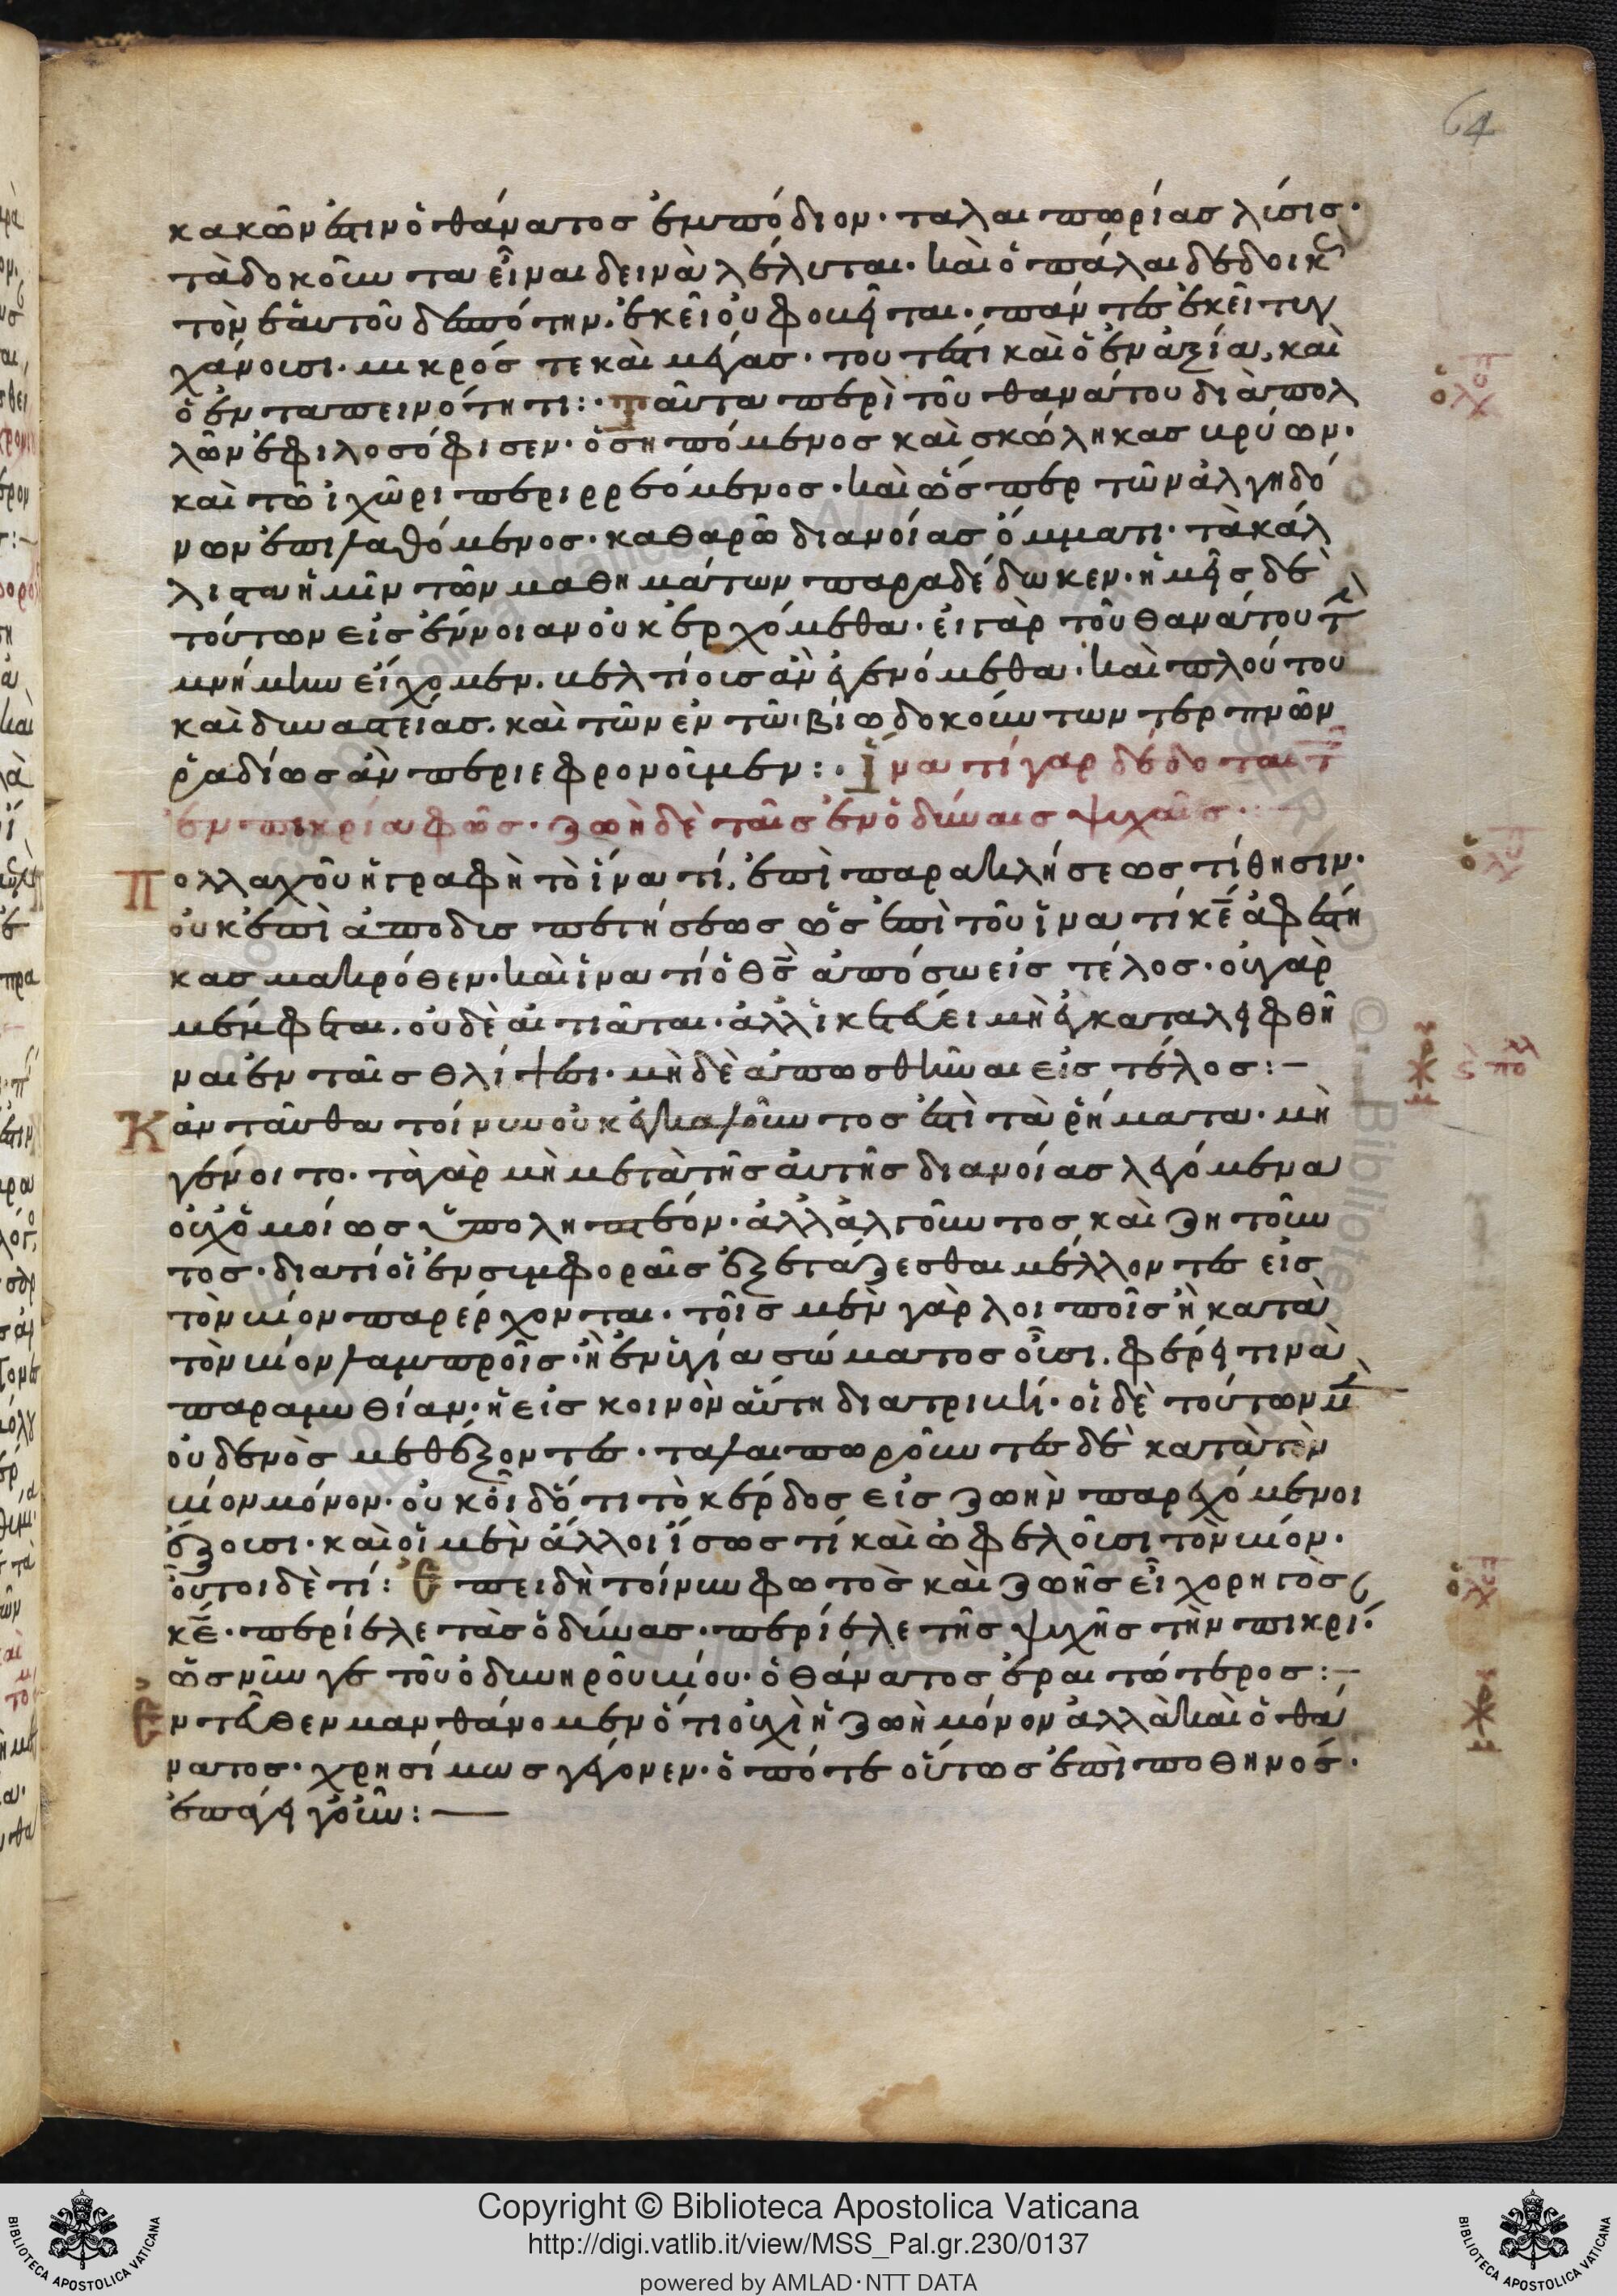 64
κακῶν ἐστιν ὁ θάνατος ἐμπόδιον· ταλαιπωρίας λύσις·
τὰ δοκοῦντα εἶναι δεινὰ λέλυται· καὶ ὁ πάλαι δεδοικ
τὸν ἑαυτοῦ δεσπότην. ἐκεῖ οὐ φοβεῖται· πάντες ἐκεῖ τυγ
χάνουσι. μικρός τε καὶ μέγας· τουτέστι καὶ ὁ ἐν ἀξία, καὶ
ὁ ἐν ταπεινότητι:· Ταῦτα περὶ τοῦ θανάτου διὰ πολ
λῶν ἐφιλοσόφισεν· ὁ σηπόμενος καὶ σκώληκας βρύων·
καὶ τῶ ἰχῶρι περιρρεόμενος· καὶ ὥσπερ τῶν ἀλγηδό
νων ἐπιλαθόμενος· καθαρῶ διανοίας ὄμματι· τὰ κάλ
λιστα ἡμῖν τῶν μαθημάτων παραδέδωκεν· ἡμεῖς δὲ
τούτων εἰς ἔννοιαν οὐκ ἐρχόμεθα· εἰ γὰρ τοῦ θανάτου τ
μνήμην εἴχομεν. βελτίους ἂν ἐγενόμεθα· καὶ πλούτου
καὶ δυναστείας. καὶ τῶν ἐν τῶ βίω δοκούντων τερπνῶν
ῥαδίως ἂν περιεφρονοῦμεν:· Ἵνα τί γαρ δέδοται τ
ἐν πικρία φῶς· ζωὴ δὲ ταῖς ἐν ὀδύναις ψυχαῖς·
Πολλαχοῦ ἡ γραφὴ τὸ ἵνα τί, ἐπὶ παρακλήσεως τίθησιν·
οὐκ ἐπὶ ἀποδυσπετήσεως ὡς ἐπὶ τοῦ ἵνα τί κε ἀφέστη
κας μακρόθεν· καὶ ἵνα τί ὁ θς ἀπόσω εἰς τέλος· οὐ γὰρ
μέμφεται. οὐδὲ αἰτιᾶται· ἀλλ' ἱκετεύει μὴ ἐγκαταλειφθῆ
ναι ἐν ταῖς θλίψεσι· μὴ δὲ ἀπωσθῆναι εἰς τέλος:–
Κἀνταῦθα τοίνυν οὐκ ἐγκαλοῦντος ἐστὶ τὰ ῥήματα· μὴ
γένοιτο· τὰ γὰρ μὴ μετὰ τῆς αὐτῆς διανοίας λεγόμενα
οὐχ ὁμοίως ὑποληπτέον· ἀλλ' ἀλγοῦντος καὶ ζητοῦν
τος· διατί οἱ ἐν συμφοραῖς ἐξετάζεσθαι μέλλοντες εἰς
τὸν βίον παρέρχονται· τοῖς μὲν γὰρ λοιποῖς ἢ κατὰ
τὸν βίον λαμπροῖς· ἢ ἐν ὑγεία σώματος οὖσι. φέρει τινὰ
παραμυθίαν· ἡ εἰς κοινὸν αὕτη διατριβή· οἱ δὲ τούτων μ
οὐδενὸς μεθέξοντες· ταλαιπωροῦντες δὲ κατὰ τὸν
βίον μόνον· οὐκ οἶδ' ὅτι τὸ κέρδος εἰς ζωὴν παρερχόμενοι
ἕξουσι· καὶ οἱ μὲν ἄλλοι ἴσως τί καὶ ὠφελοῦσι τὸν βίον·
οὗτοι δὲ τί: Ἐπειδὴ τοίνυν φωτὸς καὶ ζωῆς εἶ χορηγὸς
κε· περίελε τὰς ὀδύνας· περίελε τῆς ψυχῆς τὴν πικρί·
ὡς νῦν γε τοῦ ὀδυνηροῦ βίου· ὁ θάνατος ἐραστώτερος:–
Ἐντεῦθεν μανθάνομεν ὅτι οὐχὶ ἡ ζωὴ μόνον ἀλλὰ καὶ ὁ θά
νατος· χρησίμως γέγονεν· ὁπότε οὕτως ἐπιποθηνός·
ἐπειγεγοῦν:—
Copyright © Biblioteca Apostolica Vaticana
http://digi.vatlib.it/view/MSS_Pal.gr.230/0137
powered by AMLAD·NTT DATA
BIBLIOTECA APOSTOLICA VATICANA
BIBLIOTECA APOSTOLICA VATICANA